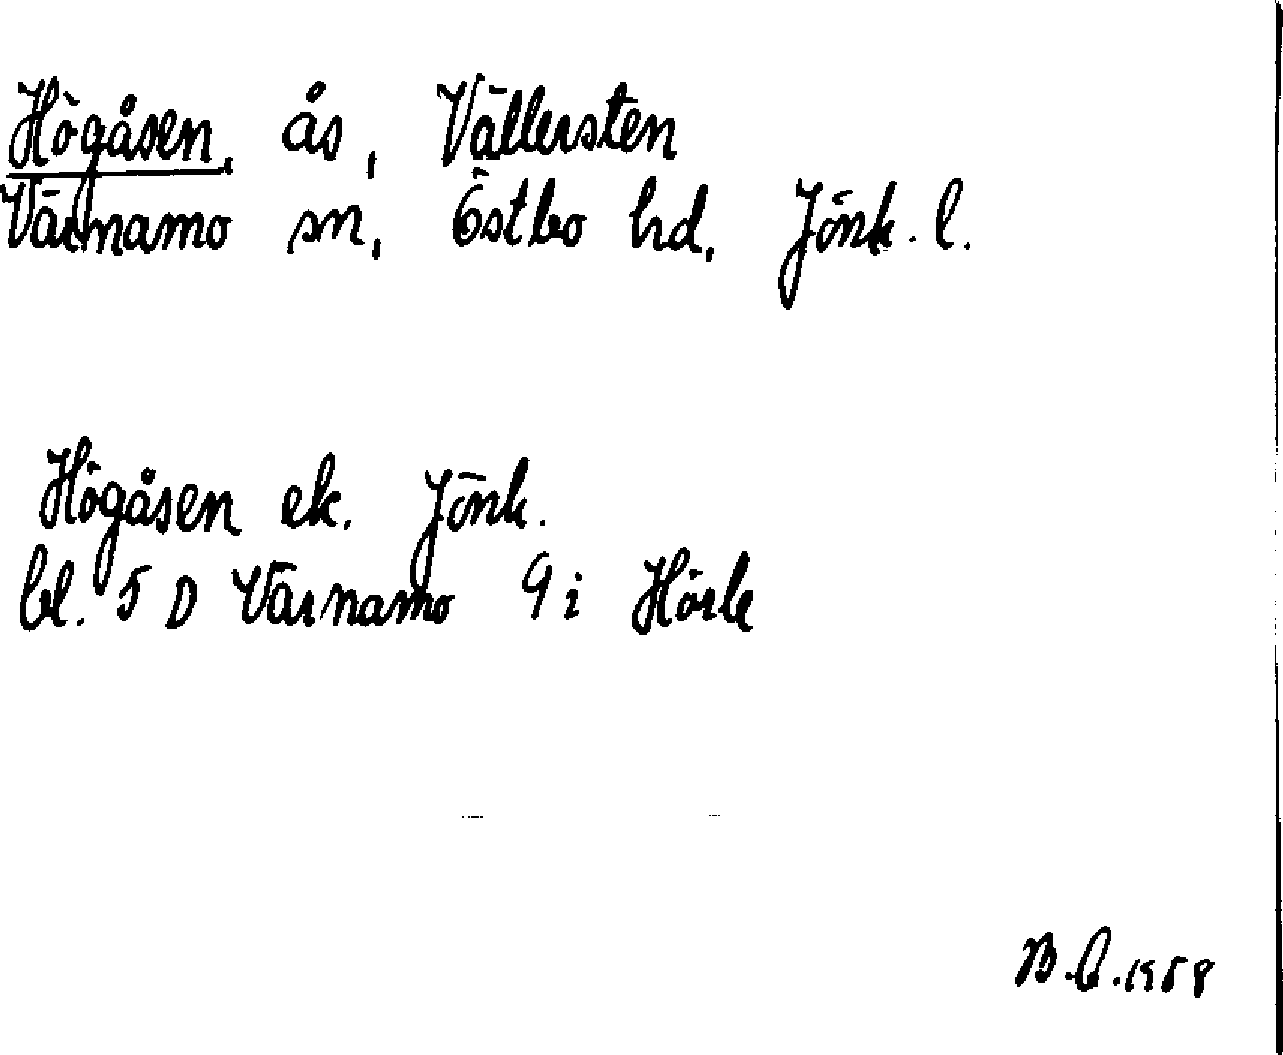 Högåsen, ås, Vällersten
Värnamo sn, Östbo hd, Jönk. l.
Högåsen ek. Jönk.
bl. 5 D Värnamo 9 i Hörle
B.C. 1958